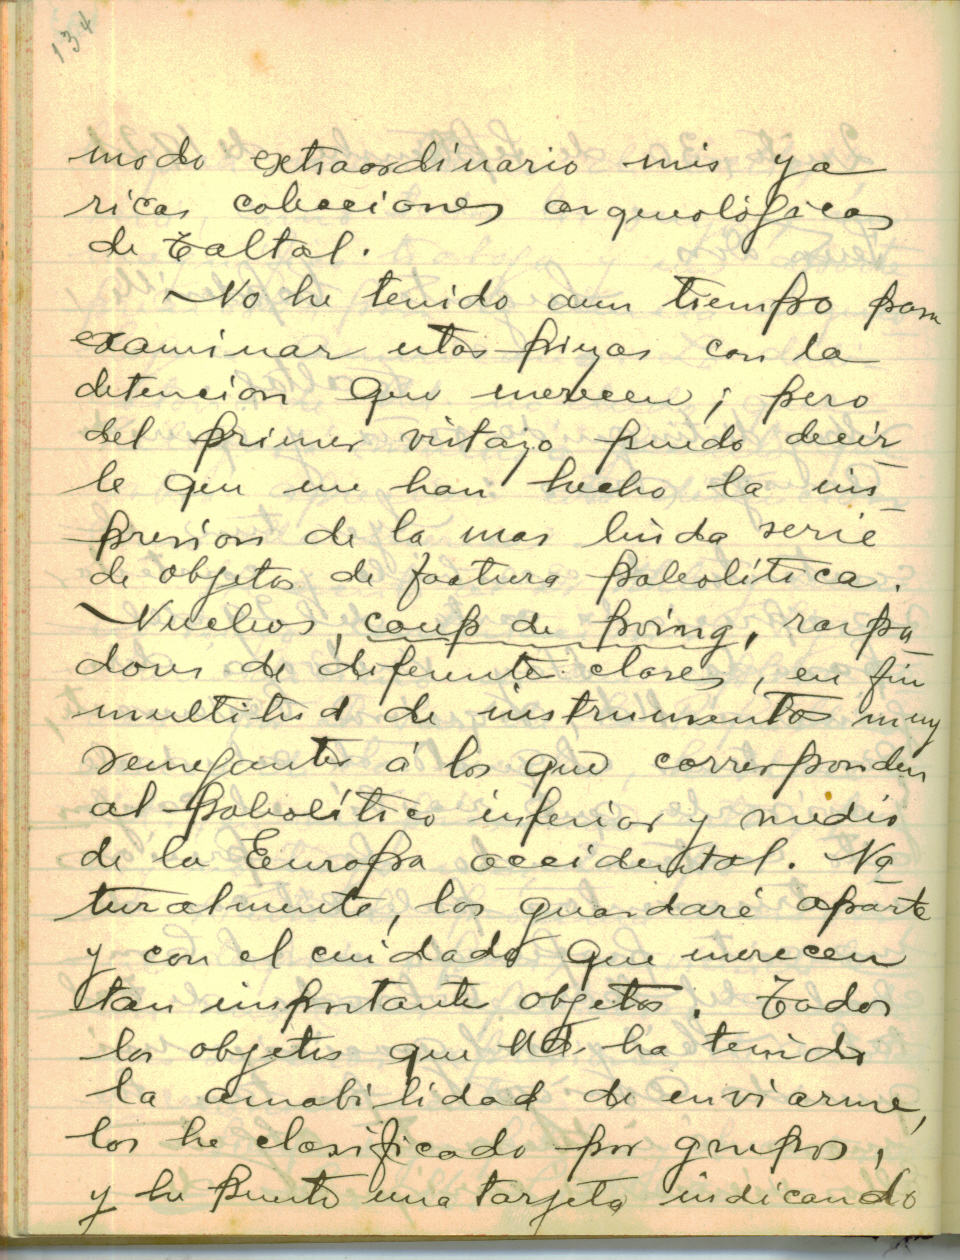 134
modo extraordinario mis ya
ricas colecciones arqueológicas
de Taltal.
No he tenido aun tiempo para
examinar estas piezas con la
detencion que merecen; pero
del primer vistazo puedo decir
le que me han hecho la im
presion de la mas linda serie
de objetos de factura paleolítica.
Muchos, coup de poing, raspa
dores de diferentes clases, en fin
multitud de instrumentos muy
semejantes á los que corresponden
al paleolítico inferior y medio
de la Europa occidental. Na
turalmente, los guardaré aparte
y con el cuidado que merecen
tan importantes objetos. Todos
los objetos que Ud. ha tenido
la amabilidad de enviarme,
los he clasificado por grupos,
y he puesto una tarjeta indicando